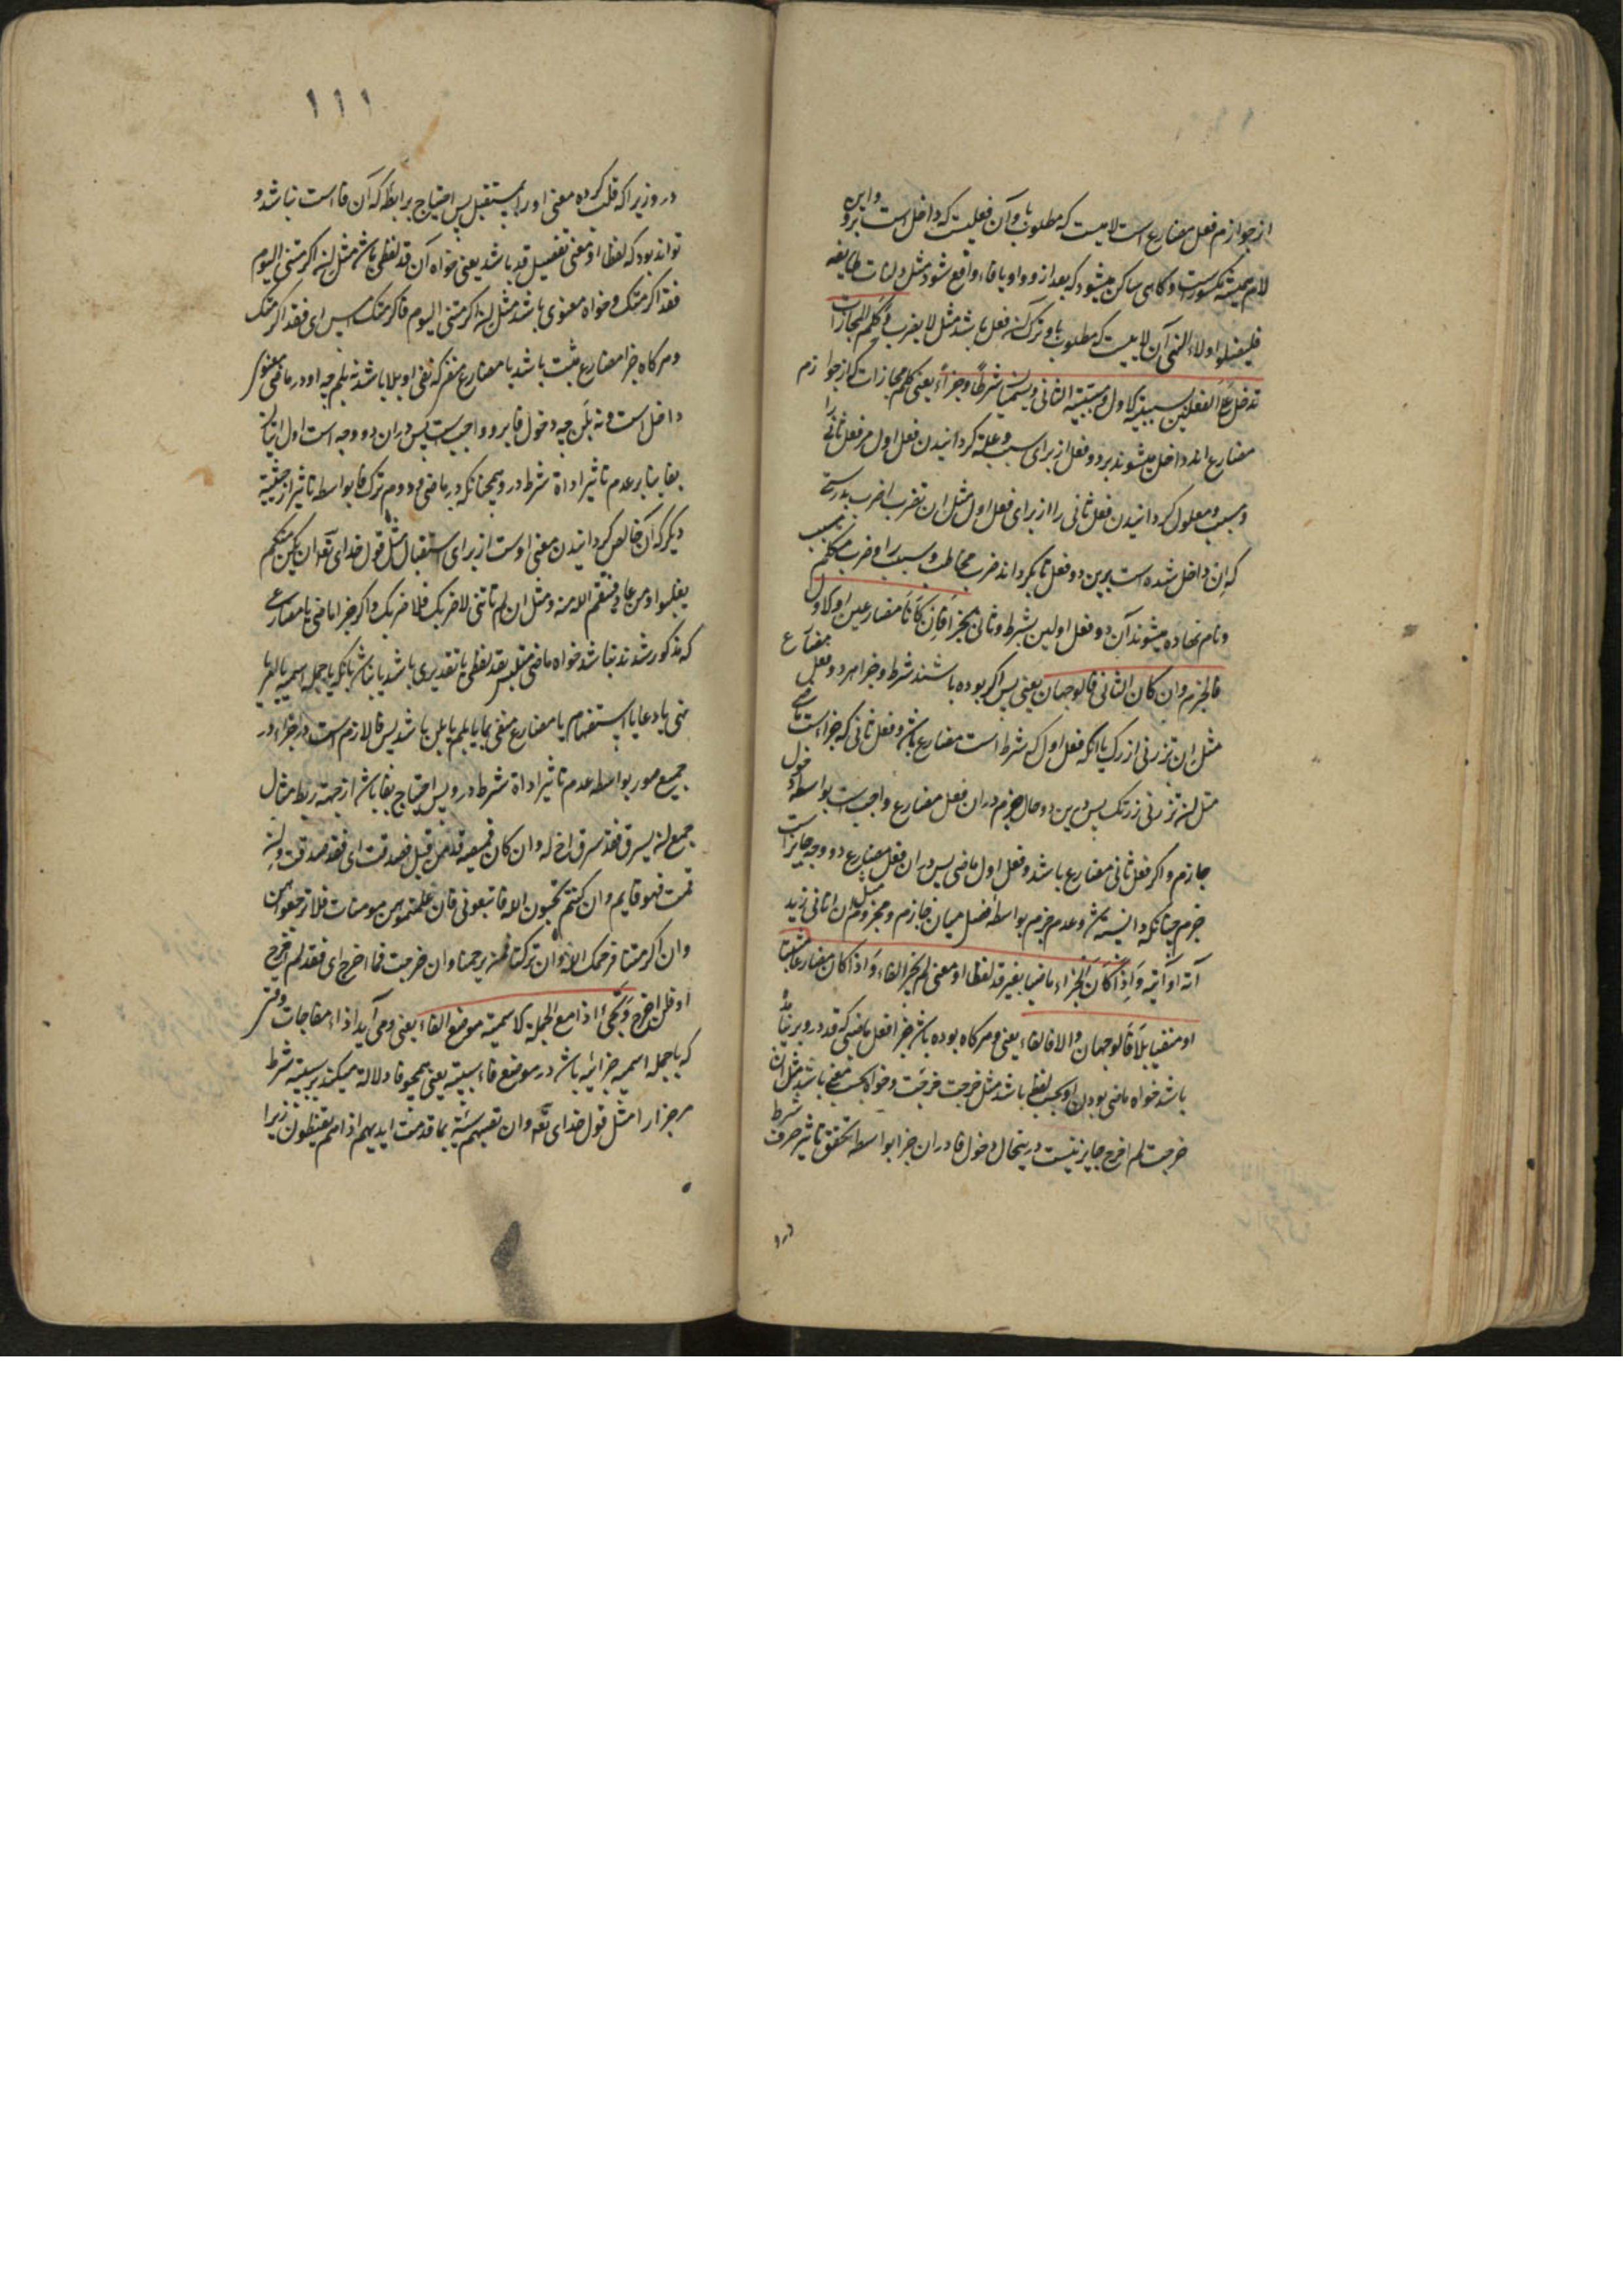 از جوازم فعل مضارع است لامیست که مطلوب با و آن فعلیست که داخل است برو و این
لام همیشه مکسورست و کاهی ساکن میشود که بعد از و واو یا فاء واقع شود مثل ولتات طایفه
فلیعملوا ولاء النهی آن لاییست که مطلوب با و ترک آن فعل باشد مثل لا یضرب و کلم المجازات
تدخل علی الفعلین لسببیة الاول و مسببیة الثانی و یسمیان شرطا و جزاء یعنی کلم مجازات که از جوازم
مضارع اند داخل میشوند بر دو فعل از برای سبب و علة کردانیدن فعل اول مر فعل ثانی را
و مسبب و معلول کردانیدن فعل ثانی را از برای فعل اول مثل ان تضرب اضرب بدرستی
که ان داخل شده است برین دو فعل تا بکرداند ضرب مخاطب را سبب و ضرب متکلم مسبب
و نام نهاده میشوند آن دو فعل اولین بشرط و ثانی بجزا فان کانا مضارعین او الاول
فالجزم و ان کان الثانی فالوجهان یعنی پس اکر بوده باشند شرط و جزا هر دو فعل مضارع
مثل ان تزرنی ازرک یا انکه فعل اول که شرط است مضارع باشد و فعل ثانی که جزاءست ماضی
مثل ان تزرنی زرتک پس درین دو حال جزم دران فعل مضارع واجب است بواسطه دخول
جازم و اکر فعل ثانی مضارع باشد و فعل اول ماضی پس دران فعل مضارع دو وجه جایز است
جزم چنانکه دانسته شد و عدم جزم بواسطه فصل میان جازم و مجزوم مثل ان اتانی زید
آته او آتیه و اذا کان الجزاء ماضیا بغیر قد لفظا او معنی لم یجز الفاء و اذا کان مضارعا مثبتا
او منفیا بلا فالوجهان و الا فالفاء یعنی و هرکاه بوده باشد جزا فعل ماضی که قد درو نباشد
باشد خواه ماضی بودن او بحسب لفظ باشد مثل خرجت خرجت و خواه بحسب معنی باشد مثل ان
خرجت لم اخرج جایز نیست درینحال دخول فا دران جزا بواسطه تحقق تاثیر حرف شرط
درو
۱۱۱
درو زیراکه قلب کرده معنی او را بمستقبل پس احتیاج برابطه که آن فاست نباشد و
تواند بود که لفظا او معنی تفصیل قد باشد یعنی خواه آن قد لفظی باشد مثل ان اکرمتنی الیوم
فقد اکرمتک و خواه معنوی باشد مثل ان اکرمتنی الیوم فاکرمتک امس ای فقد اکرمتک
و هرکاه جزا مضارع مثبت باشد یا مضارع منفی که نفی او بلا باشد نه بلم چه او در ماضی معنوی
داخل است و نه بلن چه دخول فا برو واجب است پس دران دو وجه است اول اتیان
بفا بنابر عدم تاثیر اداة شرط درو همچنانکه در ماضی و دوم ترک فا بواسطه تاثیر از حیثیة
دیکر که آن خالص کردانیدن معنی اوست از برای استقبال مثل قول خدای تعه ان یکن منکم
یغلبوا و من عاد فینتقم الله منه و مثل ان لم تاتنی لاضربک فلاضربک و اکر جزا ماضی یا مضارعی
که مذکور شدند نباشد خواه ماضی متلبس بقد لفظی یا تقدیری باشد یا نباشد بانکه یا جمله اسمیه یا امر یا
نهی یا دعا یا استفهام یا مضارع منفی بما یا بلم یا بلن باشد پس فا لازم است در جزاء در
جمیع صور بواسطه عدم تاثیر اداة شرط درو پس احتیاج بفا باشد از جهة ربط مثال
جمیع ان یسرق فقد سرق اخ له و ان کان قمیصه قد من قبل فصدقت ای فقد صدقت و ان
قمت فهو قایم و ان کنتم تحبون الله فاتبعونی فان علمتموهن مومنات فلا ترجعوهن
و ان اکرمتنا فرحمک الله و ان ترکتنا فمن یرحمنا و ان خرجت فما اخرج ای فقد لم اخرج
او فلن اخرج و یجیء اذا مع الجملة الاسمیة موضع الفاء یعنی و می آید اذاء مفاجات وقتی
که با جمله اسمیه جزائیه باشد در موضع فاء سببیة یعنی همچو فا دلالة میکند بر سببیة شرط
مر جزا را مثل قول خدای تعه و ان تصبهم سیئة بما قدمت ایدیهم اذا هم یقنطون زیرا